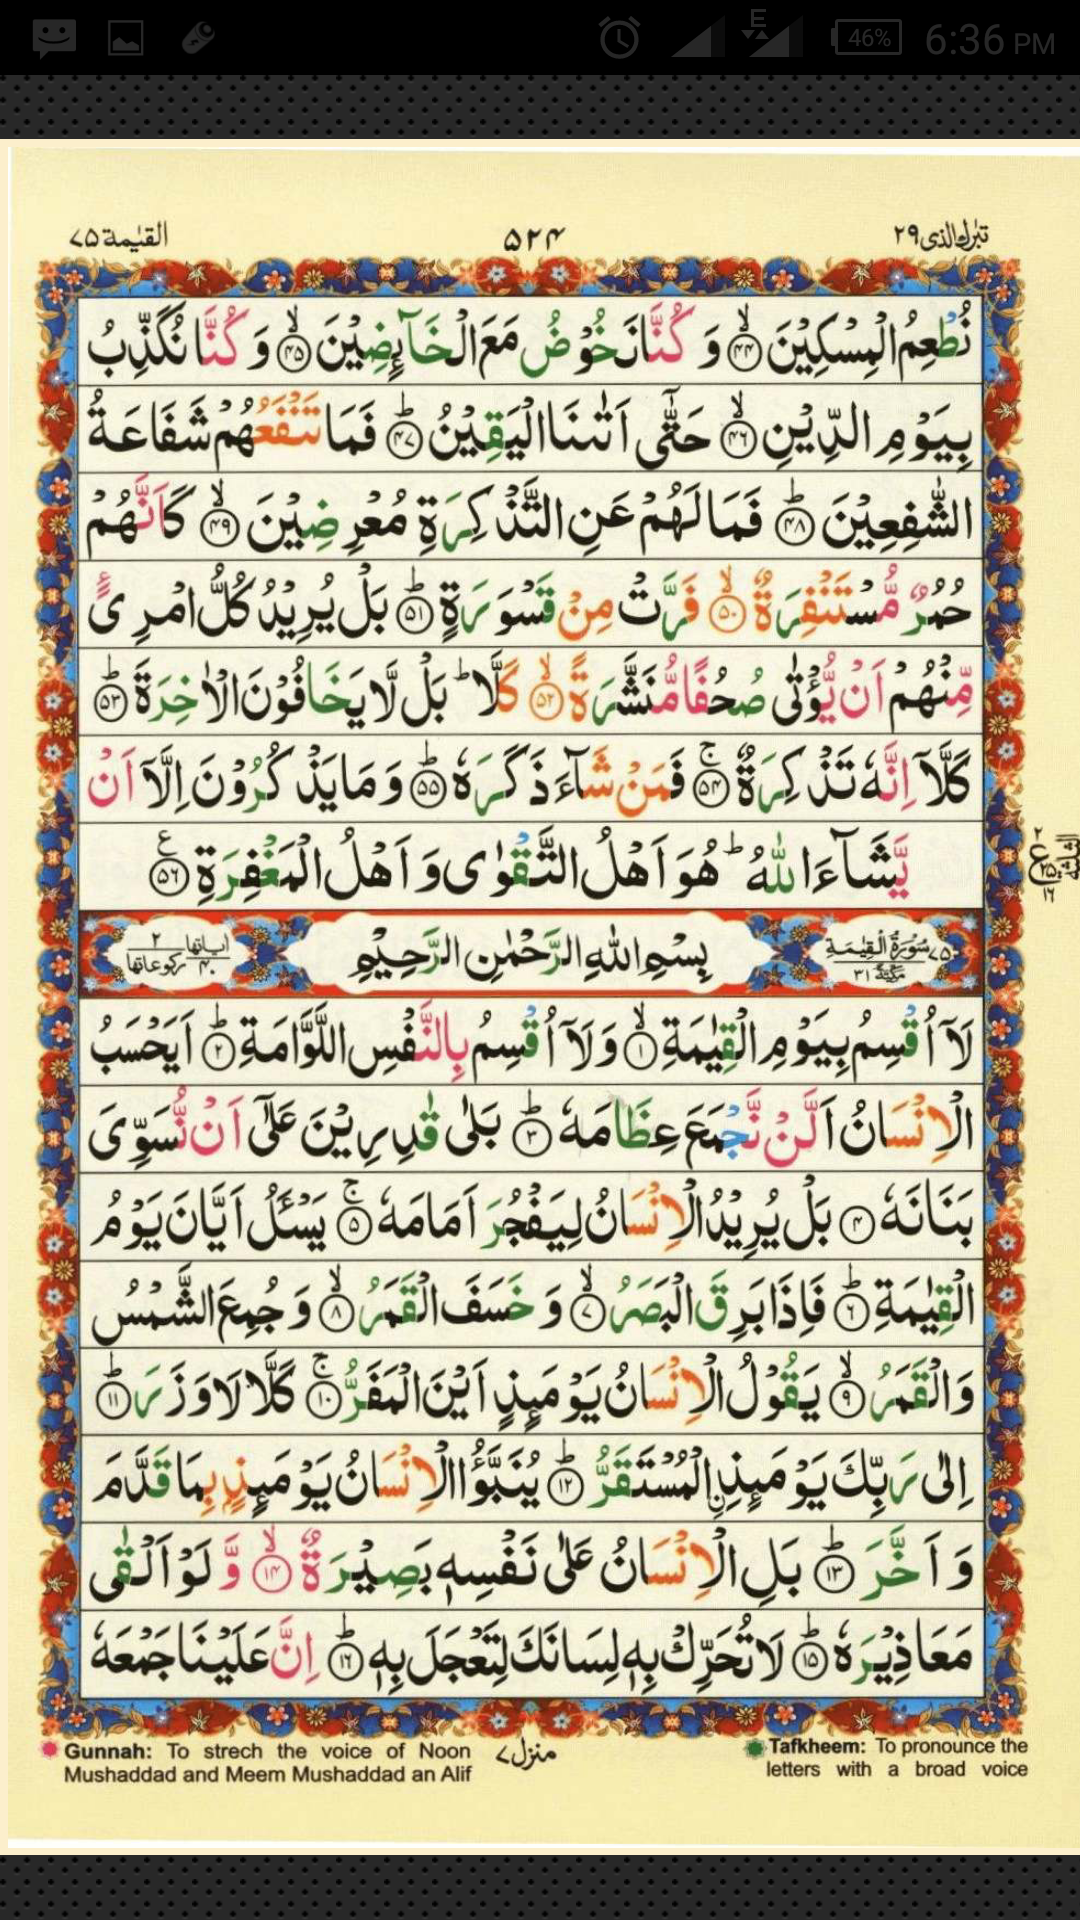 46%
6:36 PM
تبٰرك الذی ٢٩
٥٢٤
القیٰمة ٧٥
نُطْعِمُ الْمِسْكِیْنَ ۙ﴿۴۴﴾ وَ كُنَّا نَخُوْضُ مَعَ الْخَآىِٕضِیْنَ ۙ﴿۴۵﴾ وَ كُنَّا نُكَذِّبُ
بِیَوْمِ الدِّیْنِ ۙ﴿۴۶﴾ حَتّٰۤی اَتٰىنَا الْیَقِیْنُ ؕ﴿۴۷﴾ فَمَا تَنْفَعُهُمْ شَفَاعَةُ
الشّٰفِعِیْنَ ؕ﴿۴۸﴾ فَمَا لَهُمْ عَنِ التَّذْكِرَةِ مُعْرِضِیْنَ ۙ﴿۴۹﴾ كَاَنَّهُمْ
حُمُرٌ مُّسْتَنْفِرَةٌ ۙ﴿۵۰﴾ فَرَّتْ مِنْ قَسْوَرَةٍ ؕ﴿۵۱﴾ بَلْ یُرِیْدُ كُلُّ امْرِیٍٔ
مِّنْهُمْ اَنْ یُّؤْتٰی صُحُفًا مُّنَشَّرَةً ۙ﴿۵۲﴾ كَلَّا ؕ بَلْ لَّا یَخَافُوْنَ الْاٰخِرَةَ ؕ﴿۵۳﴾
كَلَّاۤ اِنَّهٗ تَذْكِرَةٌ ۚ﴿۵۴﴾ فَمَنْ شَآءَ ذَكَرَهٗ ؕ﴿۵۵﴾ وَ مَا یَذْكُرُوْنَ اِلَّاۤ اَنْ
یَّشَآءَ اللّٰهُ ؕ هُوَ اَهْلُ التَّقْوٰی وَ اَهْلُ الْمَغْفِرَةِ ﴿۵۶﴾
٧٥ سُوْرَةُ الْقِیٰمَةِ مكیة ٣١
بِسْمِ اللهِ الرَّحْمٰنِ الرَّحِیْمِ
اٰیاتها ۴۰ ركوعاتها ۲
لَاۤ اُقْسِمُ بِیَوْمِ الْقِیٰمَةِ ۙ﴿۱﴾ وَ لَاۤ اُقْسِمُ بِالنَّفْسِ اللَّوَّامَةِ ؕ﴿۲﴾ اَیَحْسَبُ
الْاِنْسَانُ اَلَّنْ نَّجْمَعَ عِظَامَهٗ ؕ﴿۳﴾ بَلٰی قٰدِرِیْنَ عَلٰۤی اَنْ نُّسَوِّیَ
بَنَانَهٗ ﴿۴﴾ بَلْ یُرِیْدُ الْاِنْسَانُ لِیَفْجُرَ اَمَامَهٗ ۚ﴿۵﴾ یَسْـَٔلُ اَیَّانَ یَوْمُ
الْقِیٰمَةِ ؕ﴿۶﴾ فَاِذَا بَرِقَ الْبَصَرُ ۙ﴿۷﴾ وَ خَسَفَ الْقَمَرُ ۙ﴿۸﴾ وَ جُمِعَ الشَّمْسُ
وَ الْقَمَرُ ۙ﴿۹﴾ یَقُوْلُ الْاِنْسَانُ یَوْمَىِٕذٍ اَیْنَ الْمَفَرُّ ۚ﴿۱۰﴾ كَلَّا لَا وَزَرَ ؕ﴿۱۱﴾
اِلٰی رَبِّكَ یَوْمَىِٕذِ ِ۟الْمُسْتَقَرُّ ؕ﴿۱۲﴾ یُنَبَّؤُا الْاِنْسَانُ یَوْمَىِٕذٍۭ بِمَا قَدَّمَ
وَ اَخَّرَ ؕ﴿۱۳﴾ بَلِ الْاِنْسَانُ عَلٰی نَفْسِهٖ بَصِیْرَةٌ ۙ﴿۱۴﴾ وَّ لَوْ اَلْقٰی
مَعَاذِیْرَهٗ ؕ﴿۱۵﴾ لَا تُحَرِّكْ بِهٖ لِسَانَكَ لِتَعْجَلَ بِهٖ ؕ﴿۱۶﴾ اِنَّ عَلَیْنَا جَمْعَهٗ
Gunnah: To strech the voice of Noon
Mushaddad and Meem Mushaddad an Alif
منزل ٧
Tafkheem: To pronounce the
letters with a broad voice